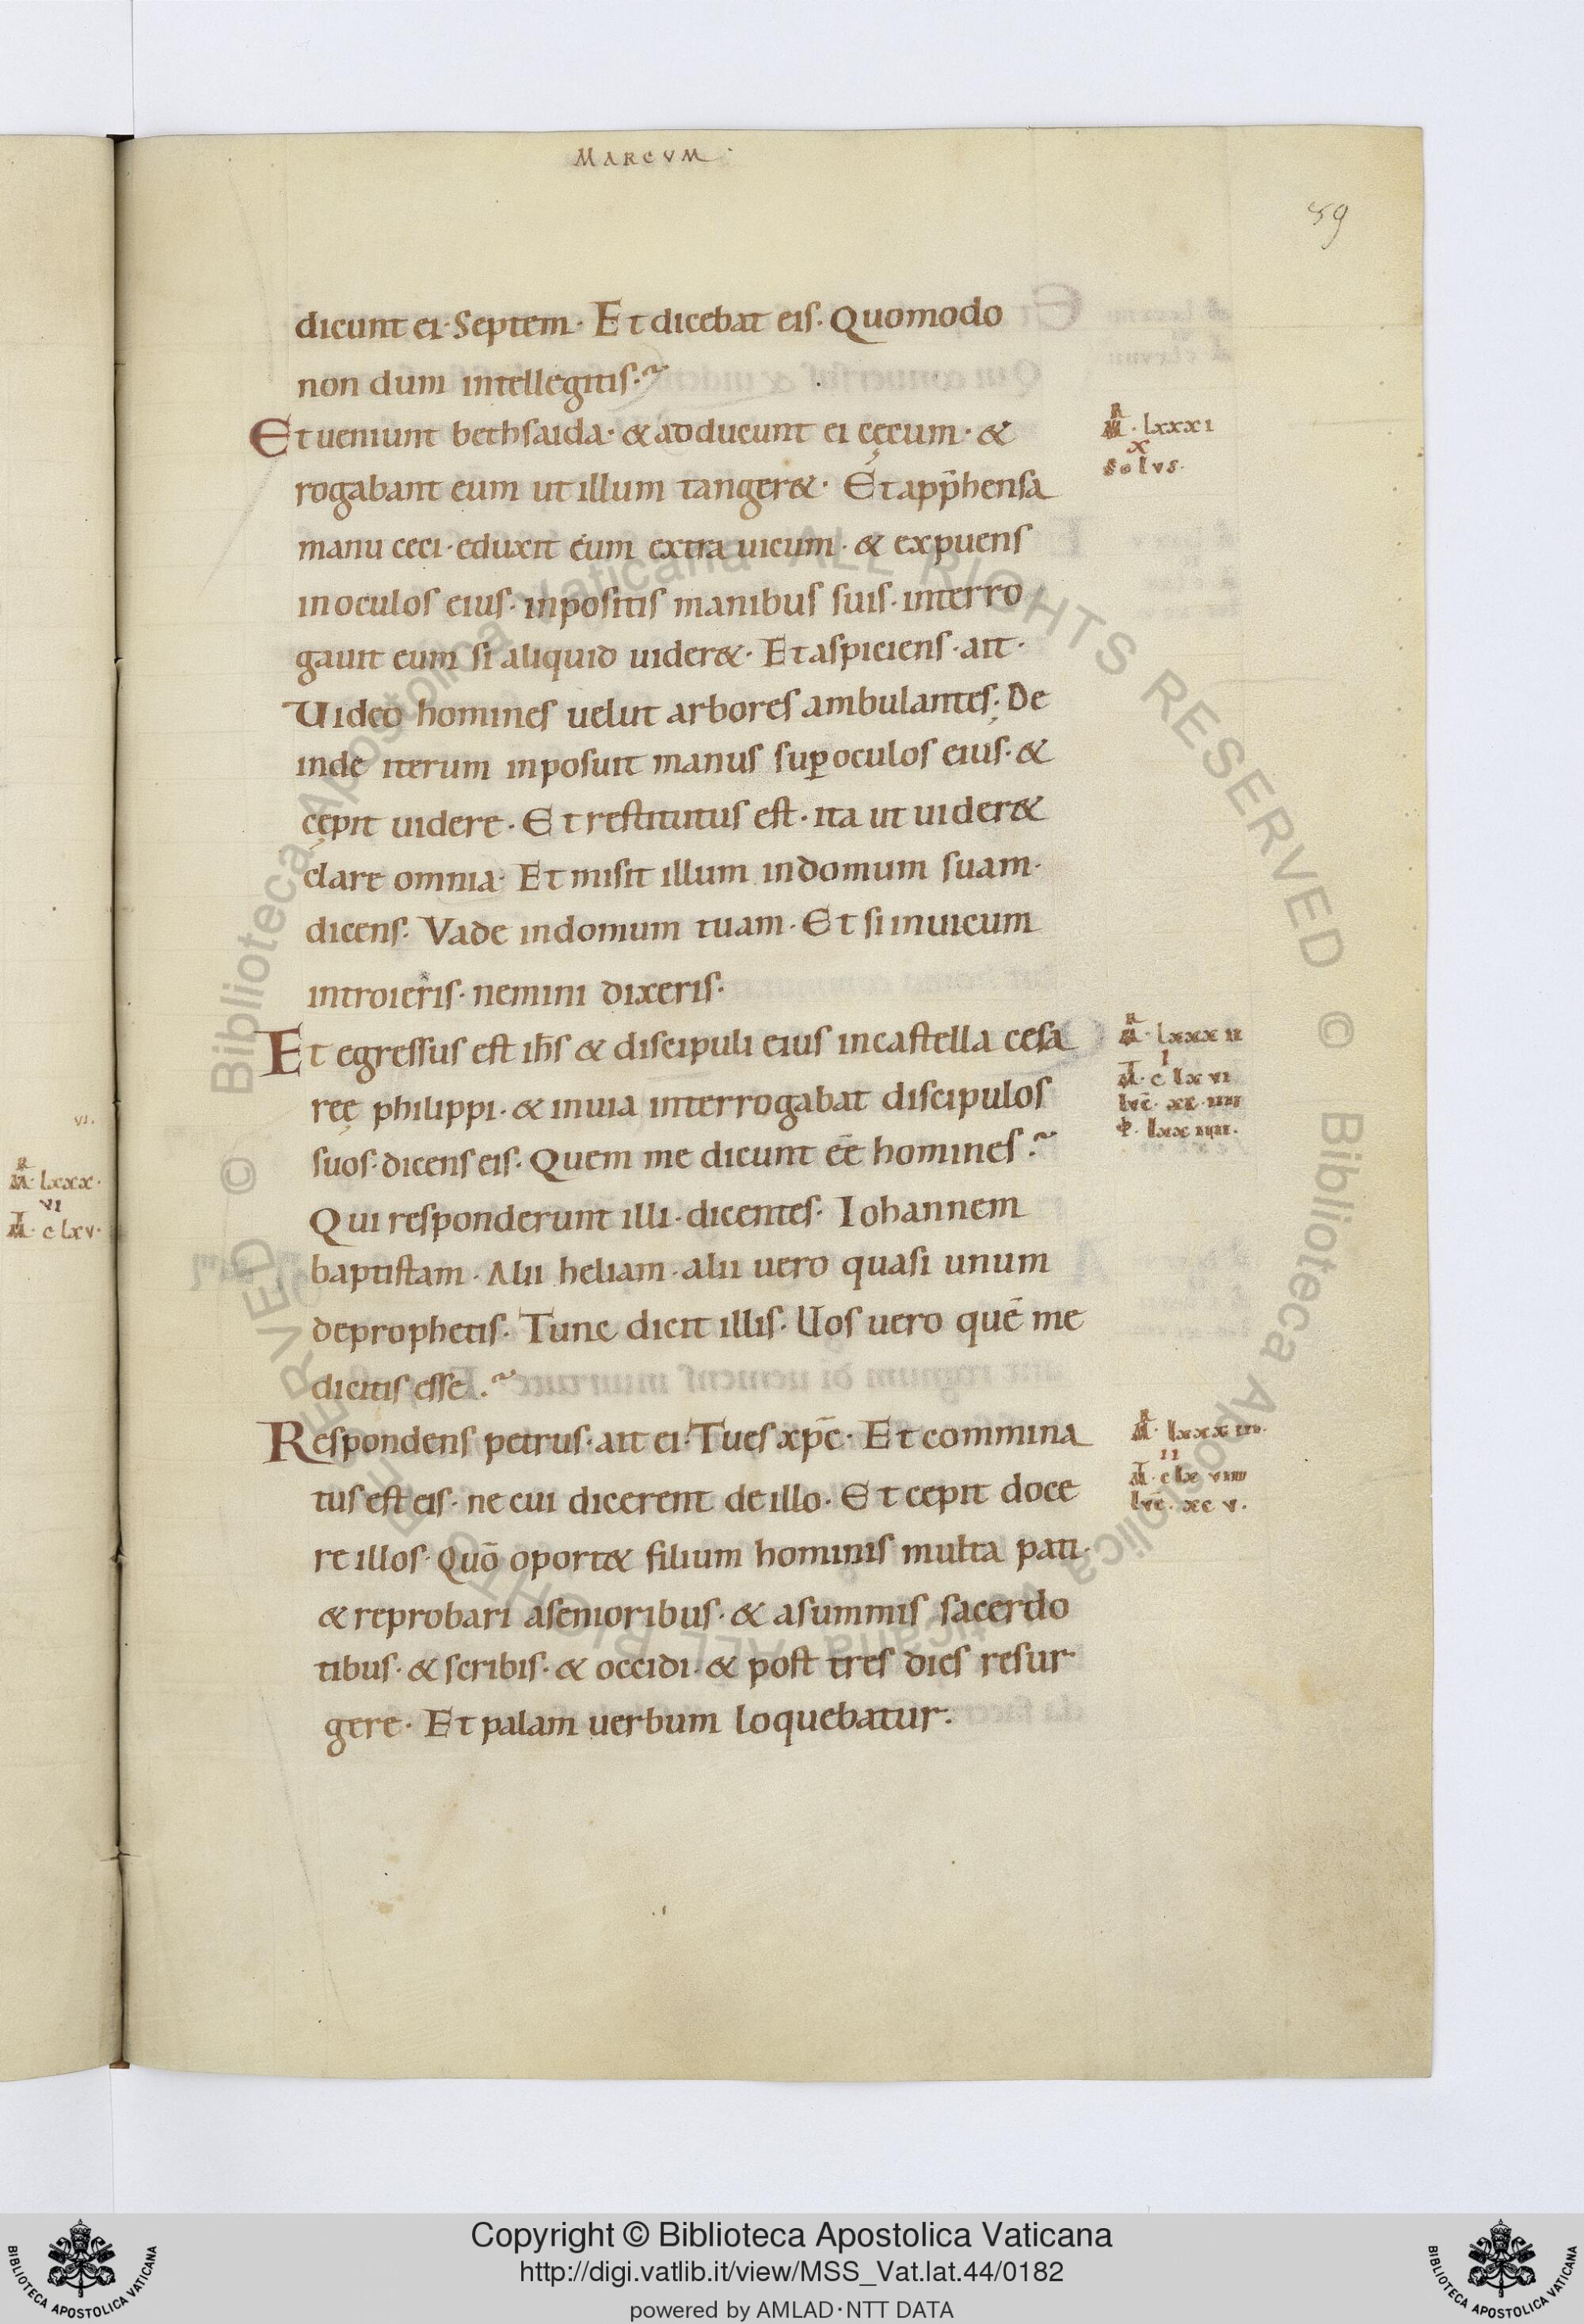 MARCVM
59
dicunt ei· Septem· Et dicebat eis· Quomodo
non dum intellegitis·
Et ueniunt bethsaida· & adducunt ei cęcum· &
rogabant eum ut illum tanger&· Et app̄hensa
manu ceci· eduxit eum extra uicum· & expuens
inoculos eius· inpositis manibus suis· interro
gauit eum si aliquid uider&· Et aspiciens· ait·
Uideo homines uelut arbores ambulantes; De
inde iterum inposuit manus suꝑ oculos eius· &
cępit uidere· Et restitutus est· ita ut uider&
clare omnia· Et misit illum indomum suam·
dicens· Vade indomum tuam· Et si inuicum
introieris· nemini dixeris·
Et egressus est ih̄s & discipuli eius incastella cesa
reę philippi· & inuia interrogabat discipulos
suos· dicens eis· Quem me dicunt ēē homines·
Qui responderunt illi· dicentes· Iohannem
baptistam· Alii heliam· alii uero quasi unum
deprophetis· Tunc dicit illis· Uos uero quē me
dicitis esse·
Respondens petrus· ait ei· Tu es xp̄c· Et commina
tus est eis· ne cui dicerent de illo· Et cepit doce
re illos· Quō oport& filium hominis multa pati·
& reprobari asenioribus· & asummis sacerdo
tibus· & scribis· & occidi· & post tres dies resur
gere· Et palam uerbum loquebatur·
lxxxi
x
solvs·
lxxxii
i
clxvi
lvc̄· xciiii
lxxiiii·
lxxxiii·
ii
clxviiii
lvc̄· xcv·
vi·
lxxx·
vi
clxv·
© Biblioteca Apostolica Vaticana ALL RIGHTS RESERVED
© Biblioteca Apostolica Vaticana ALL RIGHTS RESERVED
Copyright © Biblioteca Apostolica Vaticana
http://digi.vatlib.it/view/MSS_Vat.lat.44/0182
powered by AMLAD·NTT DATA
BIBLIOTECA APOSTOLICA VATICANA
BIBLIOTECA APOSTOLICA VATICANA